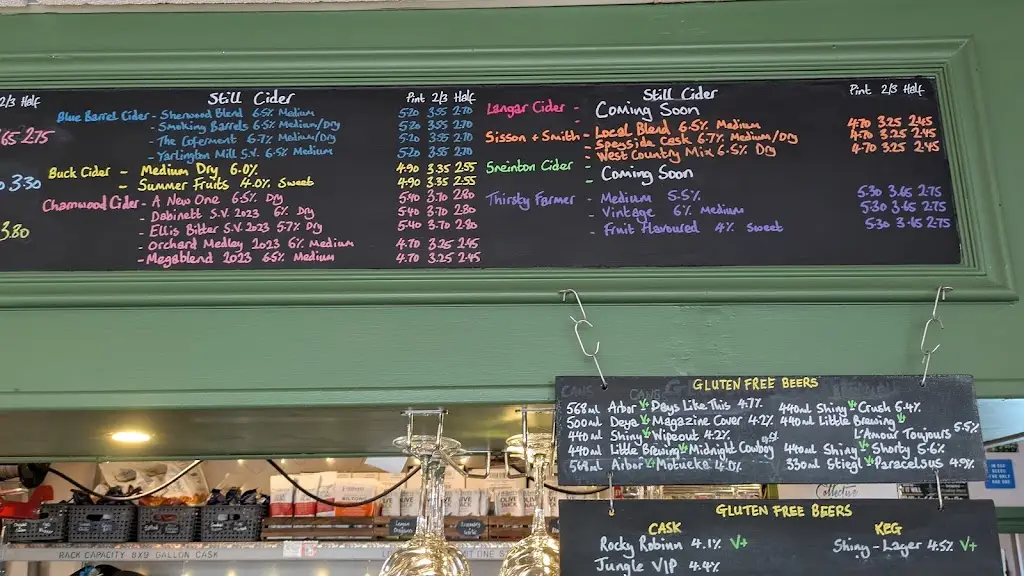 2/3 Half
65 2.75
3.30
3.80
Still Cider Pint 2/3 Half
Blue Barrel Cider - Sherwood Blend 6.5% Medium 5.20 3.55 2.70
- Smoking Barrels 6.5% Medium/Dry 5.20 3.55 2.70
- The Coferment 6.7% Medium/Dry 5.20 3.55 2.70
- Yarlington Mill S.V. 6.5% Medium 5.20 3.55 2.70
Buck Cider - Medium Dry 6.0% 4.90 3.35 2.55
- Summer Fruits 4.0% Sweet 4.90 3.35 2.55
Charnwood Cider - A New One 6.5% Dry 5.40 3.70 2.80
- Dabinett S.V. 2023 6% Dry 5.40 3.70 2.80
- Ellis Bitter S.V. 2023 5.7% Dry 5.40 3.70 2.80
- Orchard Medley 2023 6% Medium 4.70 3.25 2.45
- Megablend 2023 6.5% Medium 4.70 3.25 2.45
Still Cider Pint 2/3 Half
Langar Cider - Coming Soon
Sisson + Smith - Local Blend 6.5% Medium 4.70 3.25 2.45
- Speyside Cask 6.7% Medium/Dry 4.70 3.25 2.45
- West Country Mix 6.5% Dry 4.70 3.25 2.45
Sneinton Cider - Coming Soon
Thirsty Farmer - Medium 5.5% 5.30 3.65 2.75
- Vintage 6% Medium 5.30 3.65 2.75
- Fruit Flavoured 4% Sweet 5.30 3.65 2.75
GLUTEN FREE BEERS
568ml Arbor Days Like This 4.7%
500ml Deya Magazine Cover 4.2%
440ml Shiny Wipeout 4.2%
440ml Little Brewing Midnight Cowboy
568ml Arbor Motueka 4.0%
440ml Shiny Crush 6.4%
440ml Little Brewing
L'Amour Toujours 5.5%
440ml Shiny Shorty 5.6%
330ml Stiegl Paracelsus 4.9%
Collective
GLUTEN FREE BEERS
CASK
Rocky Robinn 4.1% V+
Jungle VIP 4.4%
KEG
Shiny - Lager 4.5% V+
RACK CAPACITY 8X9 GALLON CASK